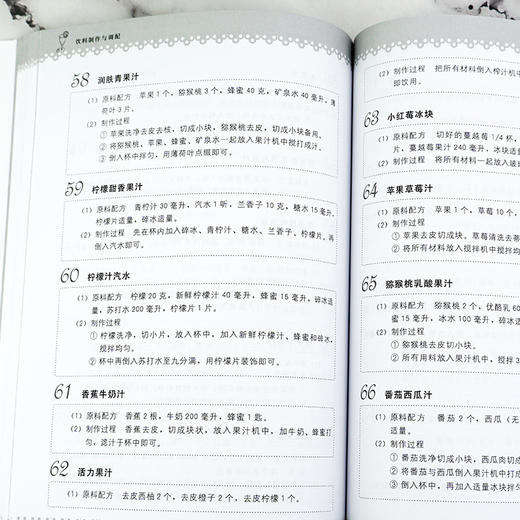 饮料制作与调配
58 润肤青果汁
(1) 原料配方 苹果 1 个，猕猴桃 3 个，蜂蜜 40 克，矿泉水 40 毫升，薄
荷叶 3 片。
(2) 制作过程
① 苹果洗净去皮去核，切成小块，猕猴桃去皮，切成小块备用。
② 将猕猴桃、苹果、蜂蜜、矿泉水一起放入果汁机中搅打成汁。
③ 倒入杯中拌匀，用薄荷叶点缀即可。
59 柠檬甜香果汁
(1) 原料配方 青柠汁 30 毫升，汽水 1 听，兰香子 10 克，糖水 15 毫升，
柠檬片适量，碎冰适量。
(2) 制作过程 先在杯内加入碎冰、青柠汁、糖水、兰香子、柠檬片，再
倒入汽水即可。
60 柠檬汁汽水
(1) 原料配方 柠檬 20 克，新鲜柠檬汁 40 毫升，蜂蜜 15 毫升，碎冰适
量，苏打水 200 毫升，柠檬片 1 片。
(2) 制作过程
① 柠檬洗净，切小片，放入杯中，加入新鲜柠檬汁、蜂蜜和碎冰，
搅拌均匀。
② 杯中再倒入苏打水至九分满，用柠檬片装饰即可。
61 香蕉牛奶汁
(1) 原料配方 香蕉 2 根，牛奶 200 毫升，蜂蜜 1 匙。
(2) 制作过程 香蕉去皮，切成块状，放入果汁机中，加牛奶、蜂蜜打
匀，滤汁于杯中即可。
62 活力果汁
(1) 原料配方 去皮西柚 2 个，去皮橙子 2 个，去皮柠檬 1 个。
(2) 制作过程 把所有材料倒入榨汁机中
即饮用。
63 小红莓冰块
(1) 原料配方 切好的蔓越莓 1/4 杯，
片，蔓越莓果汁 240 毫升，冰块适
(2) 制作过程 将所有材料一起放入玻
64 苹果草莓汁
(1) 原料配方 苹果 1 个，草莓 10 个，
(2) 制作过程
① 苹果去皮切成小块。草莓清洗去蒂
② 将所有材料放入搅拌机中搅拌均
65 猕猴桃乳酸果汁
(1) 原料配方 猕猴桃 2 个，优酪乳 60
蜜 15 毫升，冰水 100 毫升，碎冰
(2) 制作过程
① 猕猴桃去皮切小块。
② 所有用料放入果汁机中，搅拌 3
66 番茄西瓜汁
(1) 原料配方 番茄 2 个，西瓜（无
适量。
(2) 制作过程
① 番茄洗净切成小块，西瓜肉切成
② 将番茄与西瓜倒入果汁机中打成
③ 倒入杯中，再加入适量冰块拌匀